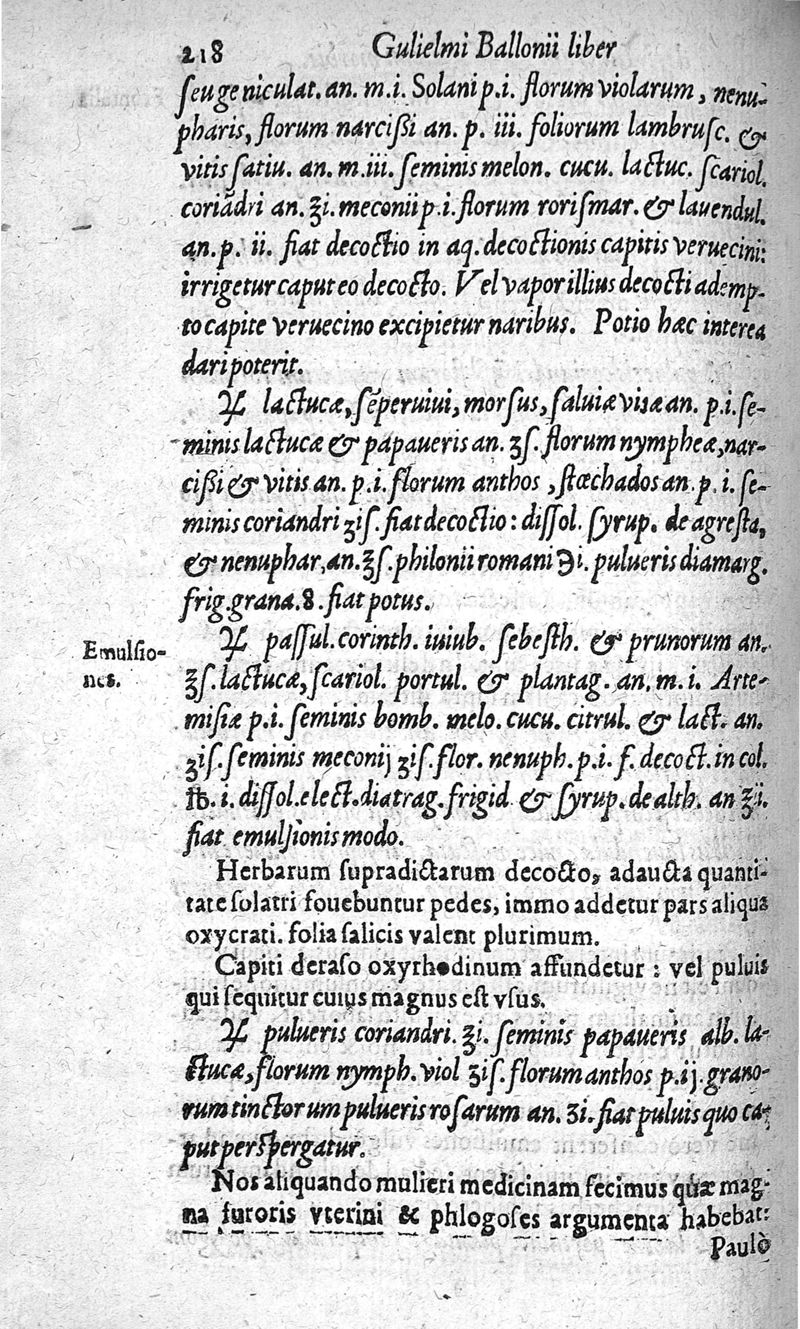 218 Gulielmi Ballonii liber
ſeu geniculat. an. m.i. Solani p.i. florum violarum, nenu-
pharis, florum narciſſi an. p. iii. foliorum lambruſc. &
vitis ſatiu. an. m.iii. ſeminis melon. cucu. lactuc. ſcariol.
coriādri an. ʒi. meconii p.i. florum roriſmar. & lauendul.
an. p. ii. fiat decoctio in aq. decoctionis capitis veruecini:
irrigetur caput eo decocto. Vel vapor illius decocti ademp-
to capite veruecino excipietur naribus. Potio hæc interea
dari poterit.
℞ lactucæ, ſēperuiui, morſus, ſaluiæ vitæ an. p.i. ſe-
minis lactucæ & papaueris an. ʒſ. florum nympheæ, nar-
ciſſi & vitis an. p.i. florum anthos, ſtœchados an. p. i. ſe-
minis coriandri ʒiſ. fiat decoctio: diſſol. ſyrup. de agreſta,
& nenuphar. an. ℥ſ. philonii romani ℈i. pulueris diamarg.
frig. grana. 8. fiat potus.
Emulſio-
nes.
℞ paſſul. corinth. iuiub. ſebeſth. & prunorum an.
℥ſ. lactucæ, ſcariol. portul. & plantag. an. m. i. Arte-
miſiæ p.i. ſeminis bomb. melo. cucu. citrul. & lact. an.
ʒiſ. ſeminis meconij ʒiſ. flor. nenuph. p.i. f. decoct. in col.
℔. i. diſſol. elect. diatrag. frigid & ſyrup. de alth. an ℥i.
fiat emulſionis modo.
Herbarum ſupradictarum decocto, adaucta quanti-
tate ſolatri fouebuntur pedes, immo addetur pars aliqua
oxycrati. folia ſalicis valent plurimum.
Capiti deraſo oxyrhodinum affundetur: vel puluis
qui ſequitur cuius magnus eſt vſus.
℞ pulueris coriandri. ℥i. ſeminis papaueris alb. la-
ctucæ, florum nymph. viol ʒiſ. florum anthos p.ij. grano-
rum tinctorum pulueris roſarum an. ʒi. fiat puluis quo ca-
put perſpergatur.
Nos aliquando mulieri medicinam fecimus quæ mag-
na furoris vterini & phlogoſes argumenta habebat:
Paulò